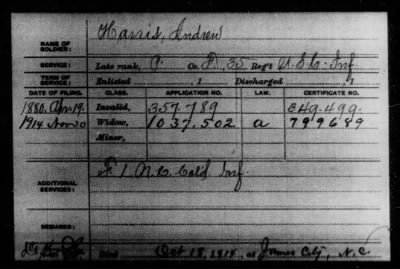 NAME OF SOLDIER: Harris, Andrew
SERVICE: Late rank, P. Co. F, 35 Reg't U.S.C. Inf.
TERM OF SERVICE: Enlisted , 1 Discharged , 1
DATE OF FILING. CLASS. APPLICATION NO. LAW. CERTIFICATE NO.
1880, Apr. 19. Invalid, 357.789 649.499.
1914 Nov 30 Widow, 1037.502 a 799689
Minor,
ADDITIONAL SERVICES: F 1 N.C. Col'd Inf.
REMARKS:
Died Oct 18, 1914, at James City, N.C.